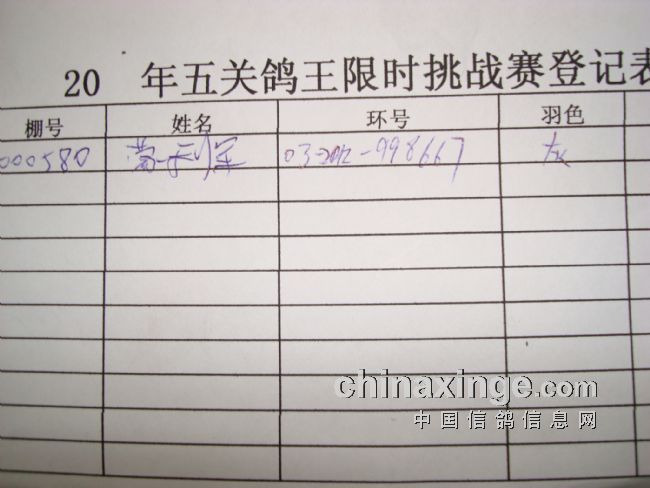 20 年五关鸽王限时挑战赛登记表
棚号 姓名 环号 羽色
000580 利军 03-2012-998667 灰
chinaxinge.com
中国信鸽信息网